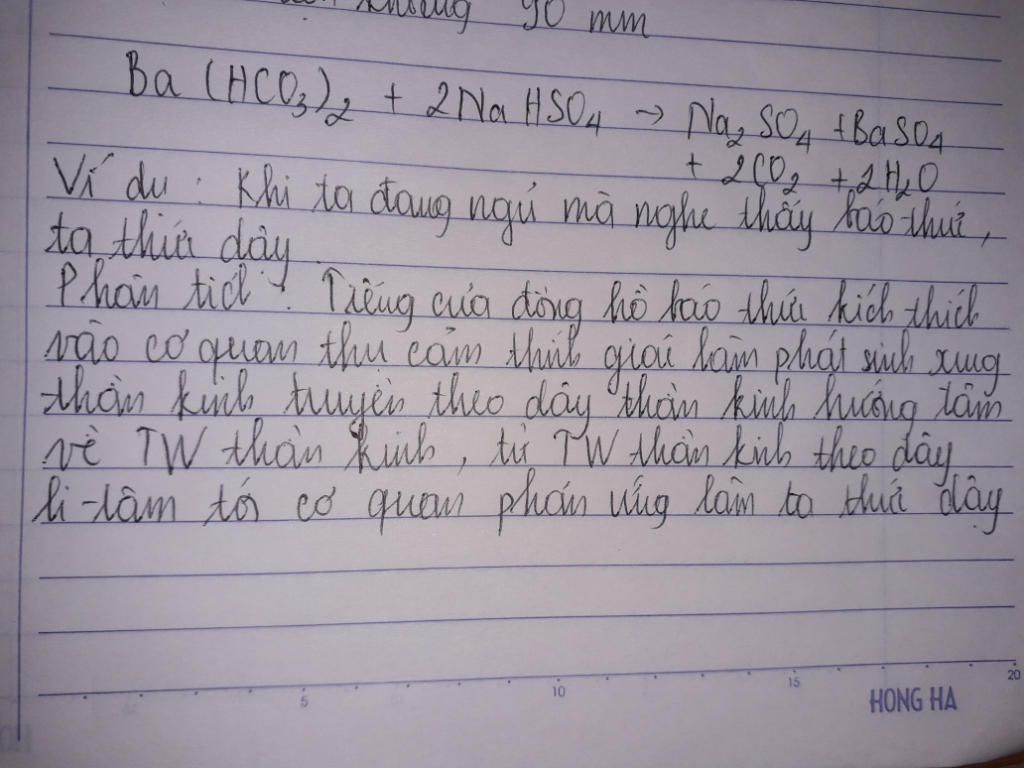 khoảng 90 mm
Ba(HCO₃)₂ + 2NaHSO₄ → Na₂SO₄ + BaSO₄
+ 2CO₂ + 2H₂O
Ví dụ : Khi ta đang ngủ mà nghe thấy báo thức,
ta thức dậy.
Phân tích : Tiếng của đồng hồ báo thức kích thích
vào cơ quan thụ cảm thính giác làm phát sinh xung
thần kinh truyền theo dây thần kinh hướng tâm
về TW thần kinh, từ TW thần kinh theo dây
li-tâm tới cơ quan phản ứng làm ta thức dậy
5 10 15 20
HONG HA